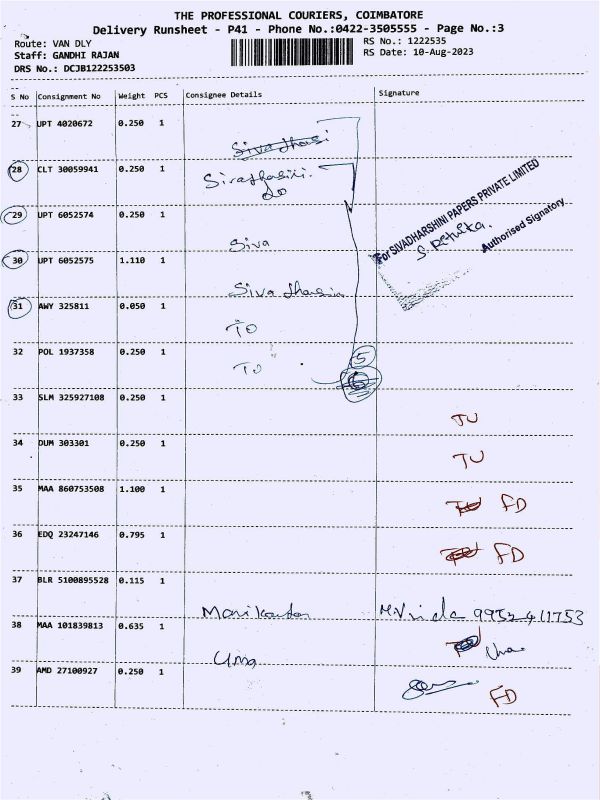 THE PROFESSIONAL COURIERS, COIMBATORE
Delivery Runsheet - P41 - Phone No.:0422-3505555 - Page No.:3
Route: VAN DLY RS No.: 1222535
Staff: GANDHI RAJAN RS Date: 10-Aug-2023
DRS No.: DCJB122253503
S No Consignment No Weight PCS Consignee Details Signature
27 UPT 4020672 0.250 1
28 CLT 30059941 0.250 1
29 UPT 6052574 0.250 1
Siva
For SIVADHARSHINI PAPERS PRIVATE LIMITED
Authorised Signatory
30 UPT 6052575 1.110 1
31 AWY 325811 0.050 1
TO
32 POL 1937358 0.250 1
5
33 SLM 325927108 0.250 1
TU
34 DUM 303301 0.250 1
TU
35 MAA 860753508 1.100 1
FD
36 EDQ 23247146 0.795 1
FD
37 BLR 5100895528 0.115 1
38 MAA 101839813 0.635 1
Uma
39 AMD 27100927 0.250 1
FD